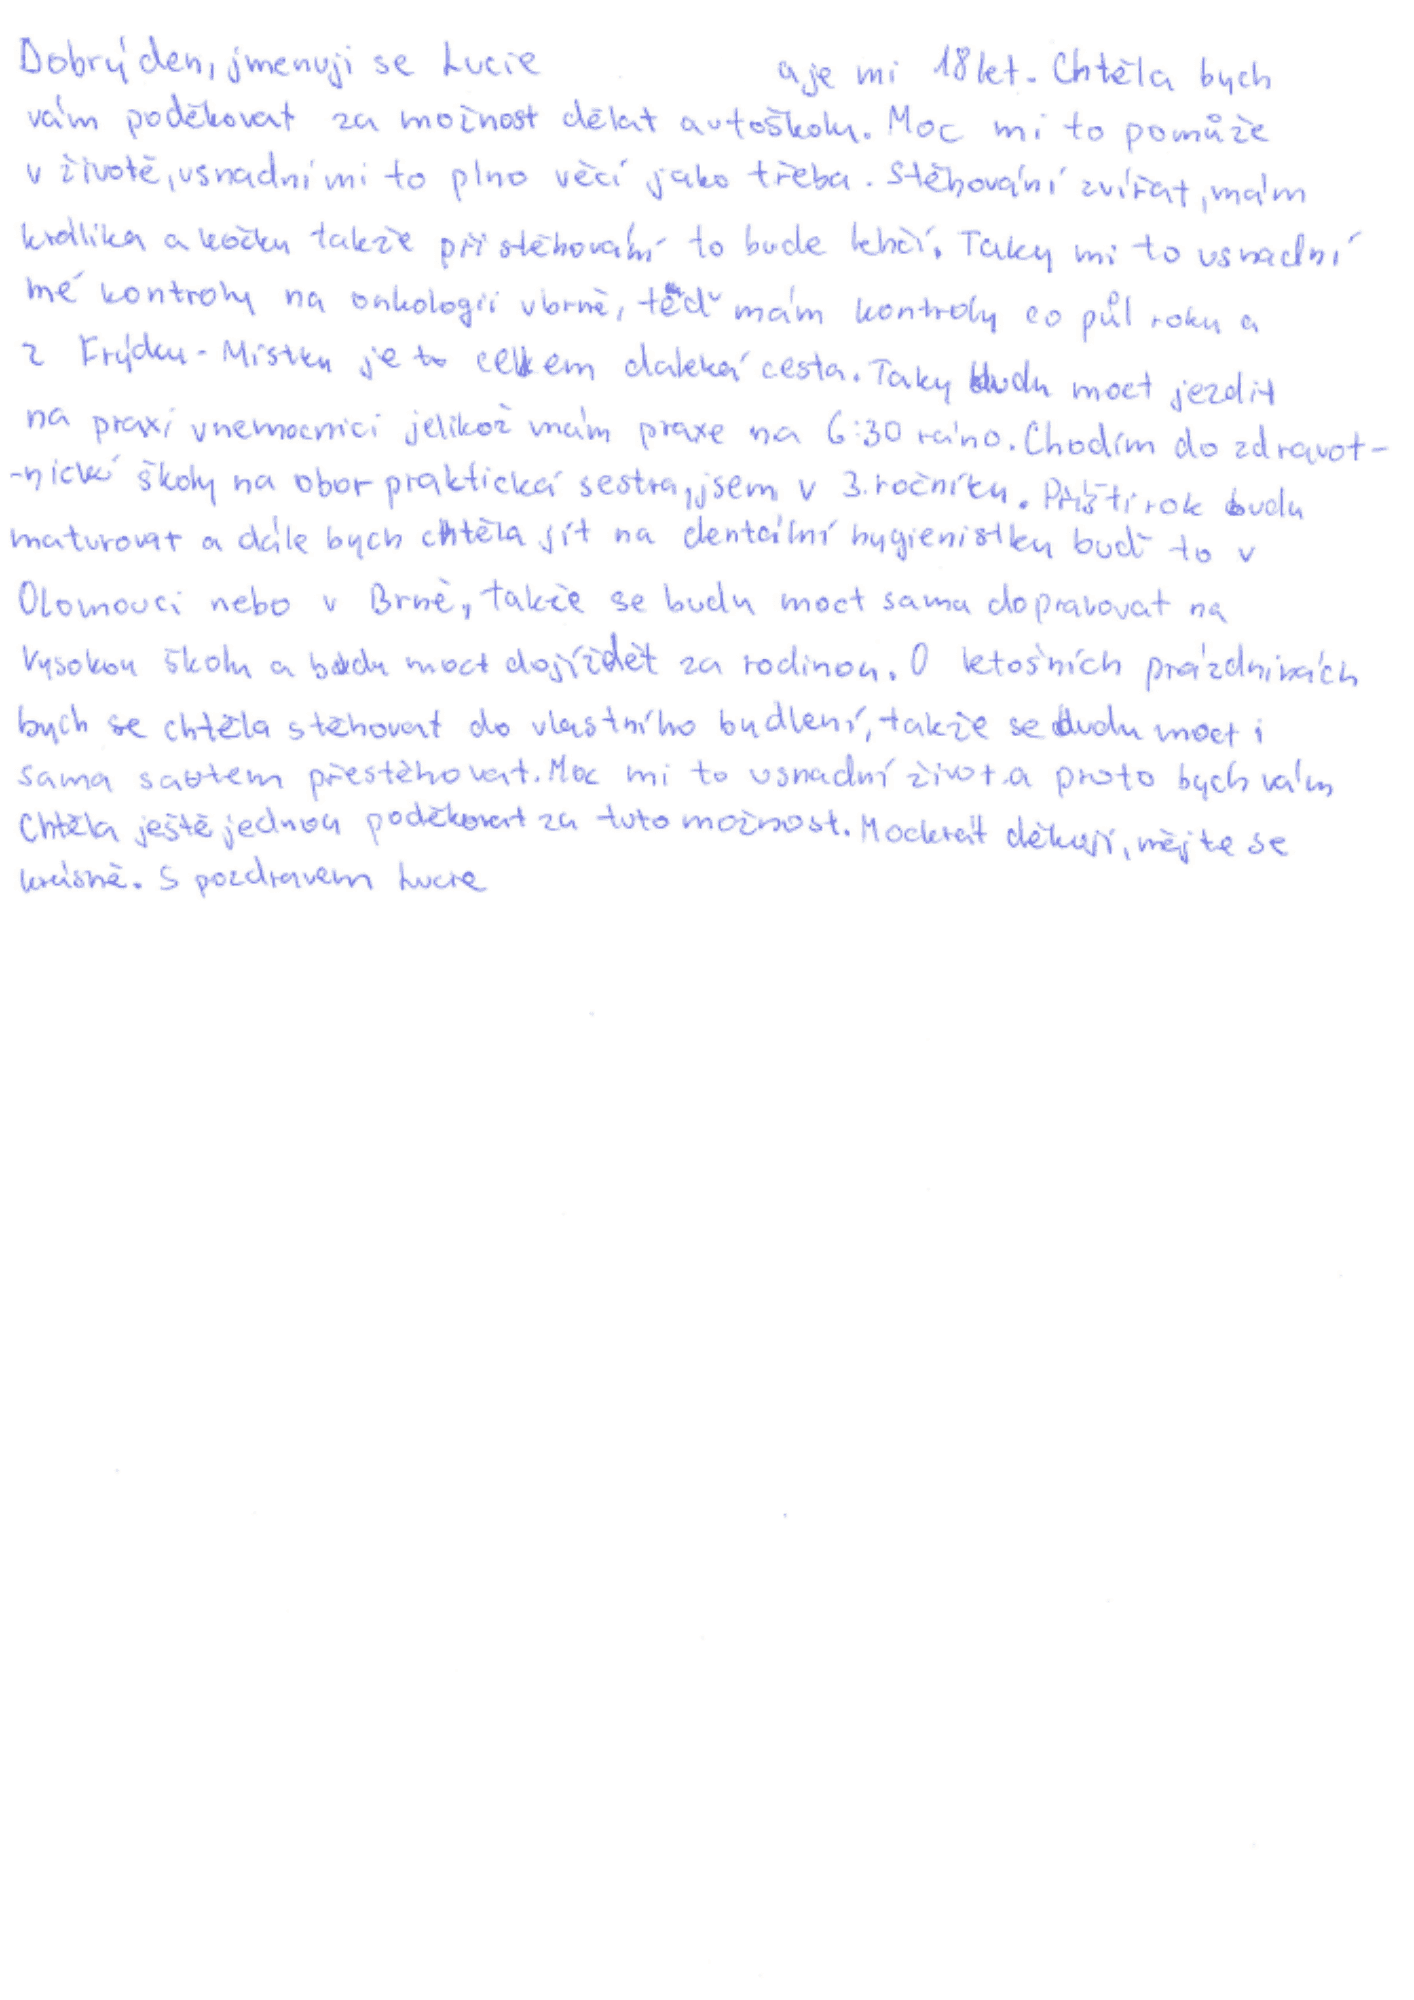 Dobrý den, jmenuji se Lucie a je mi 18 let. Chtěla bych
vám poděkovat za možnost dělat autoškolu. Moc mi to pomůže
v životě, usnadní mi to plno věcí jako třeba. Stěhování zvířat, mám
králíka a kočku takže při stěhování to bude lehčí. Taky mi to usnadní
mé kontroly na onkologii vbrně, teď mám kontroly co půl roku a
z Frýdku-Místku je to celkem daleká cesta. Taky budu moct jezdit
na praxi vnemocnici jelikož mám praxe na 6:30 ráno. Chodím do zdravot-
-nické školy na obor praktická sestra, jsem v 3. ročníku. Příští rok budu
maturovat a dále bych chtěla jít na dentální hygienistku buď to v
Olomouci nebo v Brně, takže se budu moct sama dopravovat na
Vysokou školu a budu moct dojíždět za rodinou. O letošních prázdninách
bych se chtěla stěhovat do vlastního bydlení, takže se budu moct i
sama sautem přestěhovat. Moc mi to usnadní život a proto bych vám
Chtěla ještě jednou poděkovat za tuto možnost. Mockrát děkuji, mějte se
krásně. S pozdravem Lucie